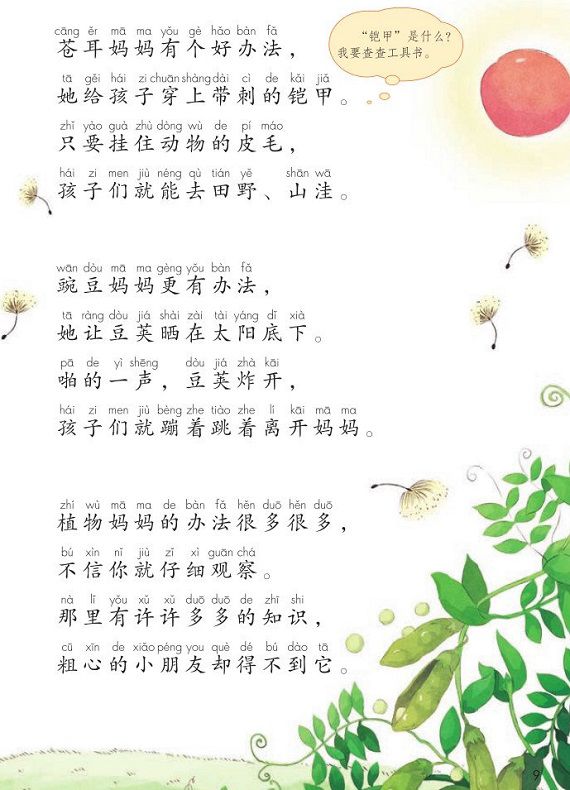 “铠甲”是什么?
我要查查工具书。
cāng ěr mā ma yǒu gè hǎo bàn fǎ
苍耳妈妈有个好办法，
tā gěi hái zi chuān shàng dài cì de kǎi jiǎ
她给孩子穿上带刺的铠甲。
zhǐ yào guà zhù dòng wù de pí máo
只要挂住动物的皮毛，
hái zi men jiù néng qù tián yě shān wā
孩子们就能去田野、山洼。
wān dòu mā ma gèng yǒu bàn fǎ
豌豆妈妈更有办法，
tā ràng dòu jiá shài zài tài yáng dǐ xià
她让豆荚晒在太阳底下。
pā de yì shēng dòu jiá zhà kāi
啪的一声，豆荚炸开，
hái zi men jiù bèng zhe tiào zhe lí kāi mā ma
孩子们就蹦着跳着离开妈妈。
zhí wù mā ma de bàn fǎ hěn duō hěn duō
植物妈妈的办法很多很多，
bú xìn nǐ jiù zǐ xì guān chá
不信你就仔细观察。
nà lǐ yǒu xǔ xǔ duō duō de zhī shi
那里有许许多多的知识，
cū xīn de xiǎo péng you què dé bú dào tā
粗心的小朋友却得不到它。
9